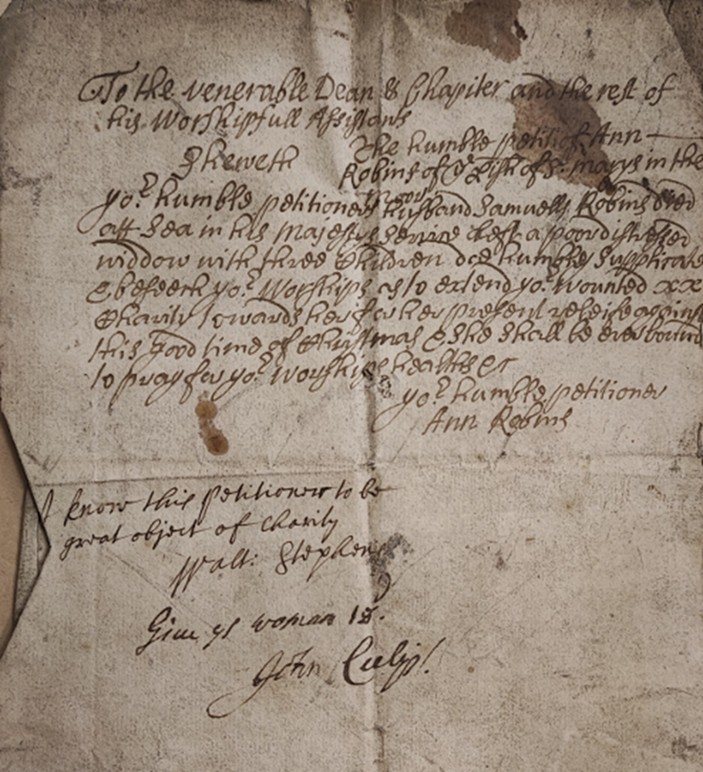 To the venerable Dean & Chapiter and the rest of
his Worshipfull Assistants
The humble petitiō of Ann
Sheweth
Robins of ye Pish of St. marys in the
yor. humble petitioners husband Samuell Robins died
att Sea in his Majestys Service & left a poor distressed
widdow with three Children doe humbly Supplicate
& beseech yor. Worships as to extend yor. wounted xx
Charity towards her for her present releife against
this good time of Christmas & she shall be ever bound
to pray for yor. worships healthes &c
yor. humble petitioner
Ann Robins
I know this Petitioner to be
great object of Charity
Walt: Stephens
Give ys woman 1s.
John